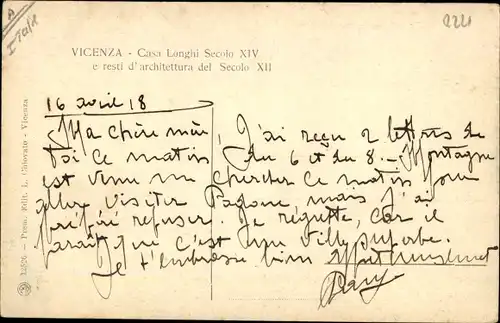 A
Italie
221
VICENZA - Casa Longhi Secolo XIV
e resti d'architettura del Secolo XII
16 avril 18
Ma chère mère, J'ai reçu 2 lettres de
toi ce matin du 6 et du 8. - Montagne
est venu me chercher ce matin pour
aller visiter Padoue mais j'ai
préféré refuser. Je regrette, car il
paraît que c'est une ville superbe.
Je t'embrasse bien
12526 - Prem. Edit. L. Chiovato - Vicenza